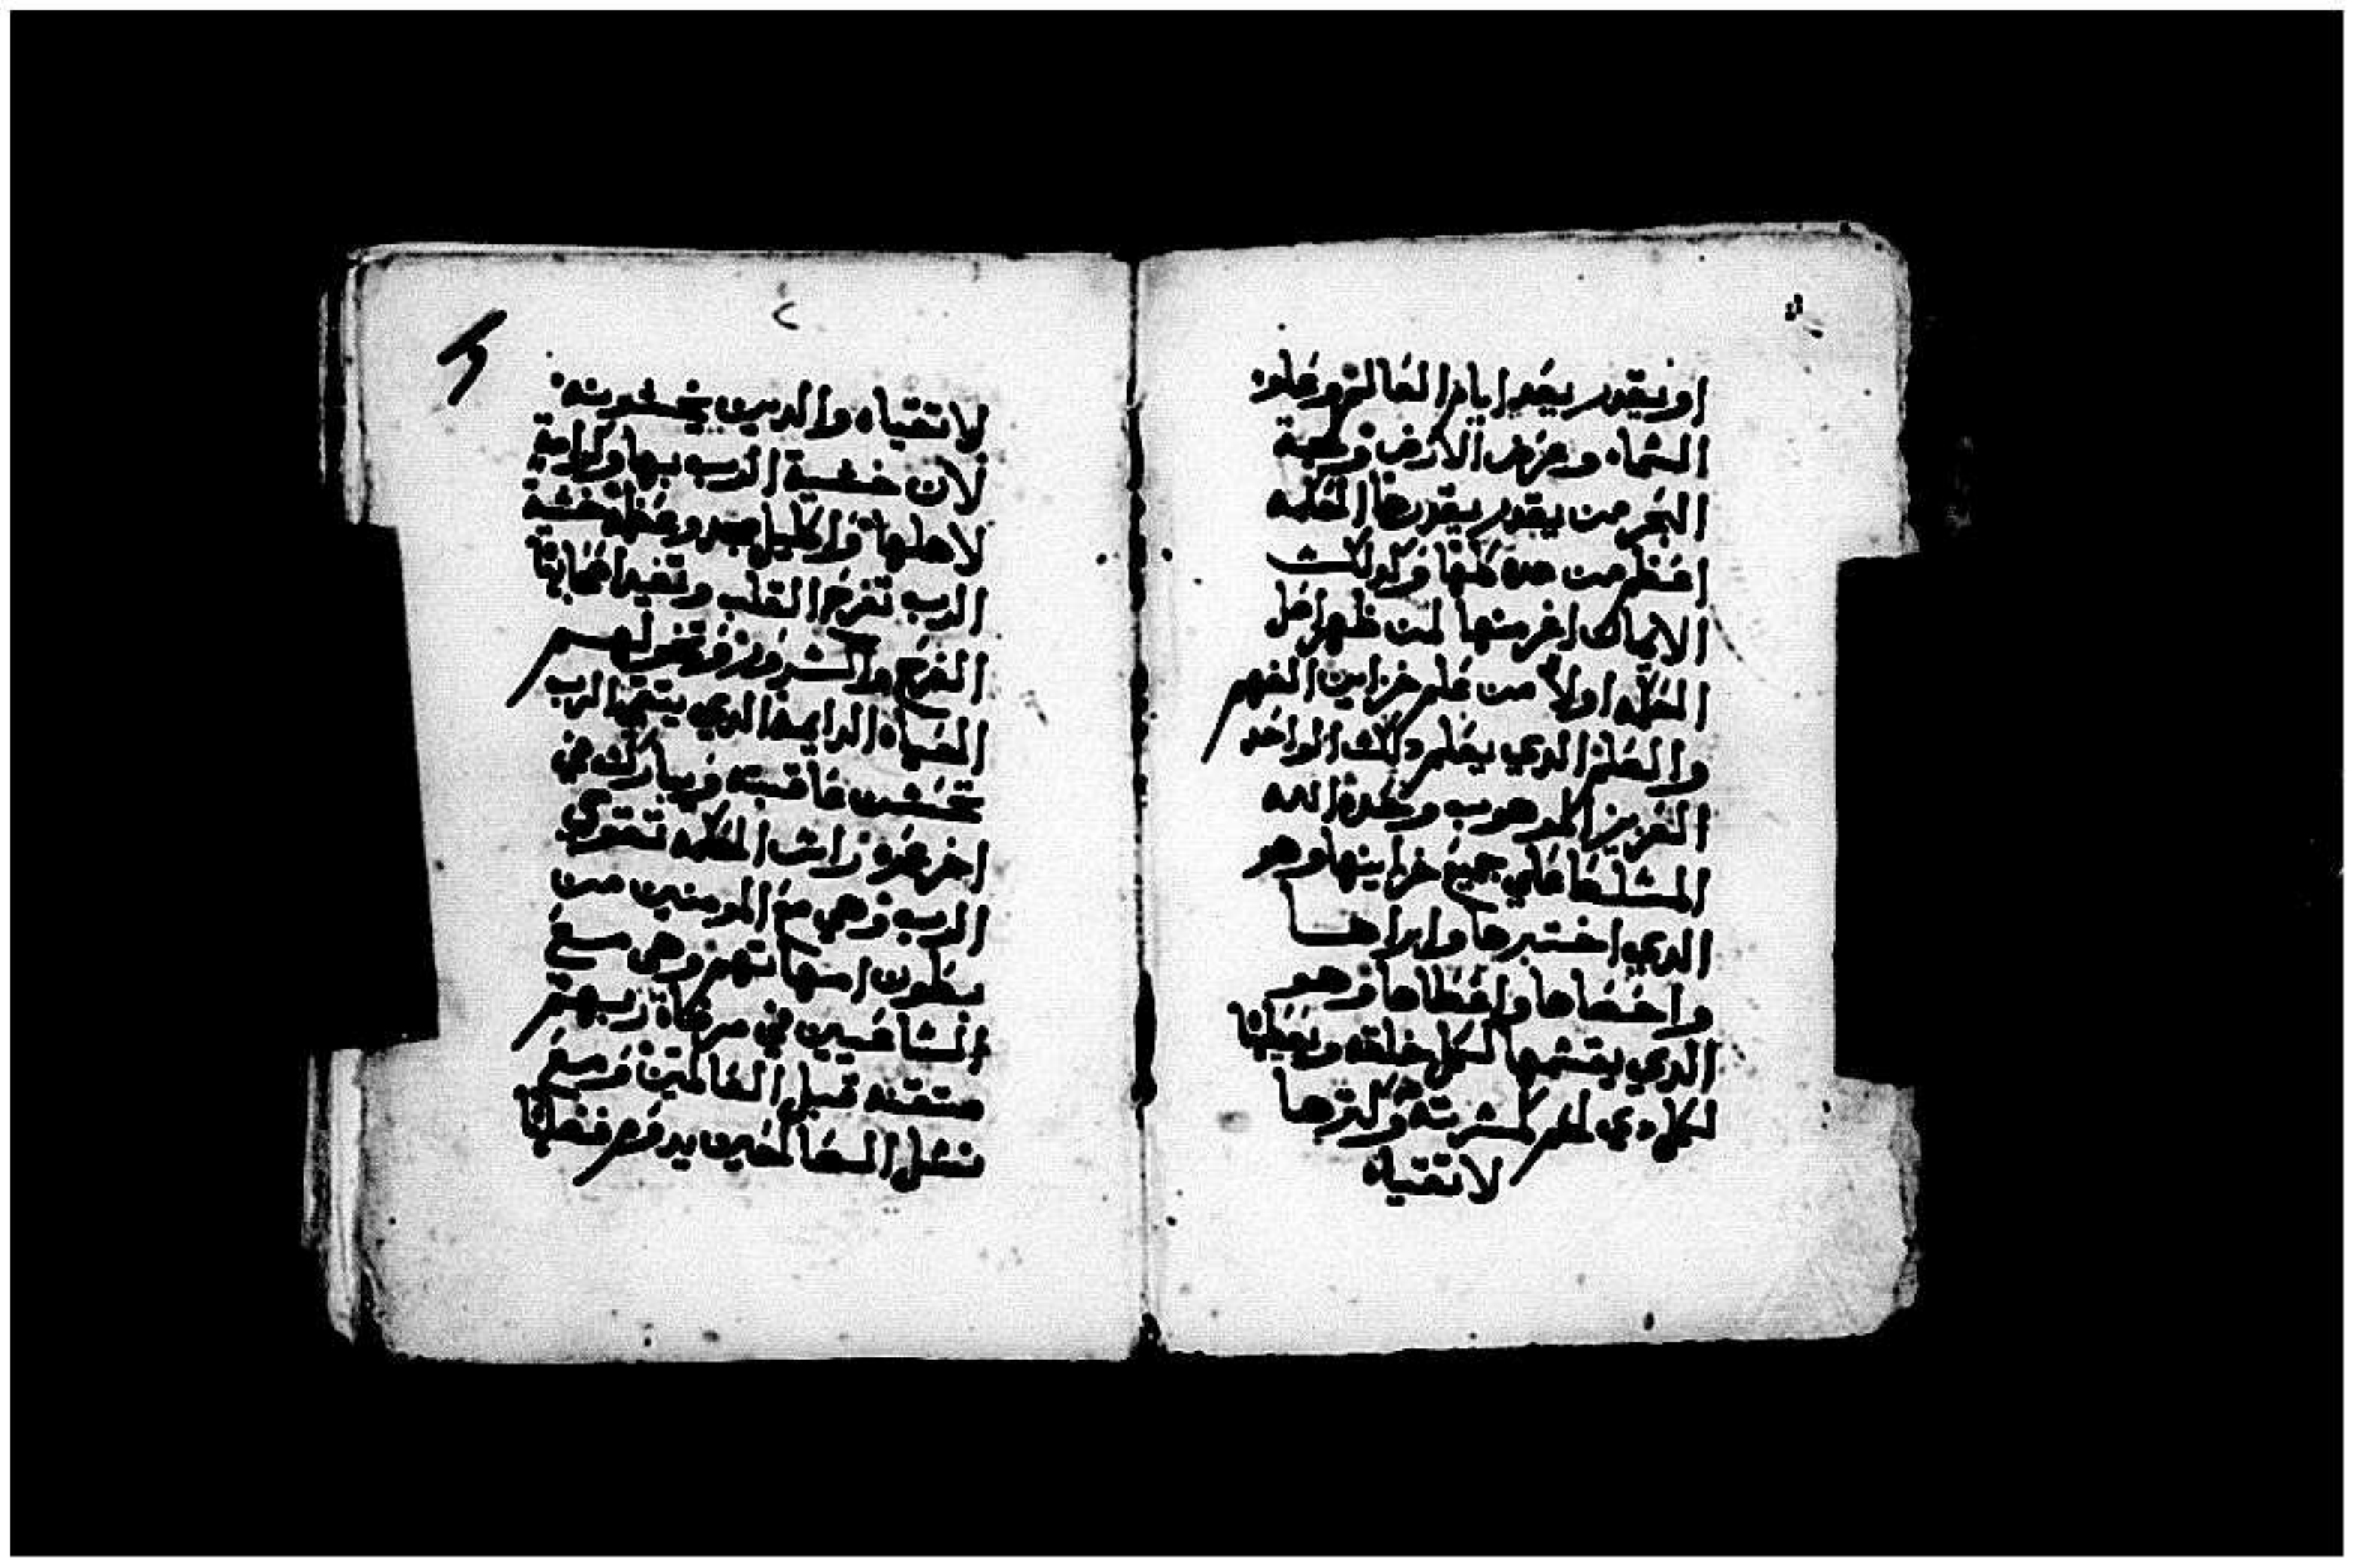 او يقدر يعد ايام العالم وعلو
السماء وعرض الارض ولجة
البحر من يقدر يقدرها الحكمه
اعظم من هده كلها وكدلكـ
الايمان اخر منها لمن ظهر اصل
الحكمه اولا من علم خزاين الفهم
والعلم الدي يعلم دلك الواحد
العزيز المرهوب وحده الله
المسلط علي جميع خزاينها وهو
الدي اختبرها وابراها
واحصاها واعطاها وهو
الدي يقسمها لكل خلقه ويعطيها
لكل دي لحم كمسرته وكترها
لاتقياه
لاتقياه والدين يخشونه
لان خشية الرب بها وكرامة
لاهلها واكليل مجد وعظم خشية
الرب تفرح القلب وتفيد اصحابها
الفرح والسرور وتدخر لهم
الحياه الدايمه الدي يتقي الرب
تحسن عاقبته ويبارك في
اخر عمره راس الحكمه تقوي
الرب وهي مع المومنين من
بطون امهاتهم وهي مع
الساعيين في مرضاة ربهم
متقنه قبل العالمين ومع
نسل الصالحين يدوم فضلها